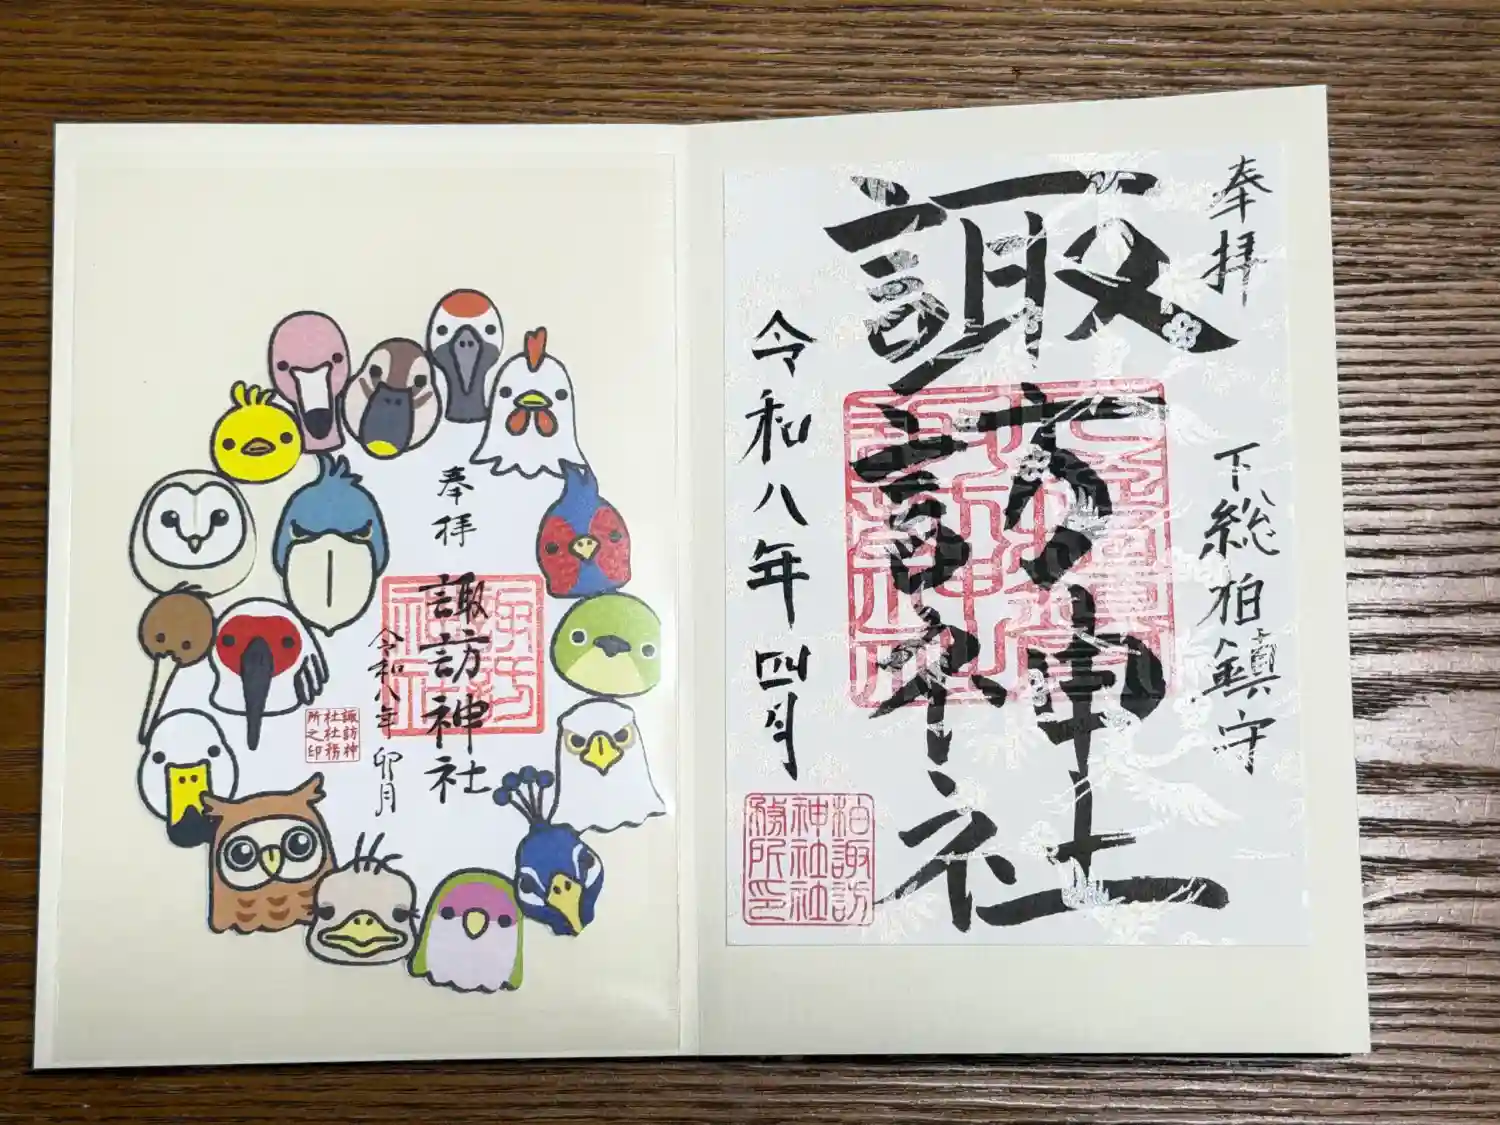 奉拝
下総柏鎮守
諏訪神社
令和八年四月
柏諏訪
神社社
務所印
奉拝
諏訪神社
令和八年 卯月
諏訪神
社社務
所之印